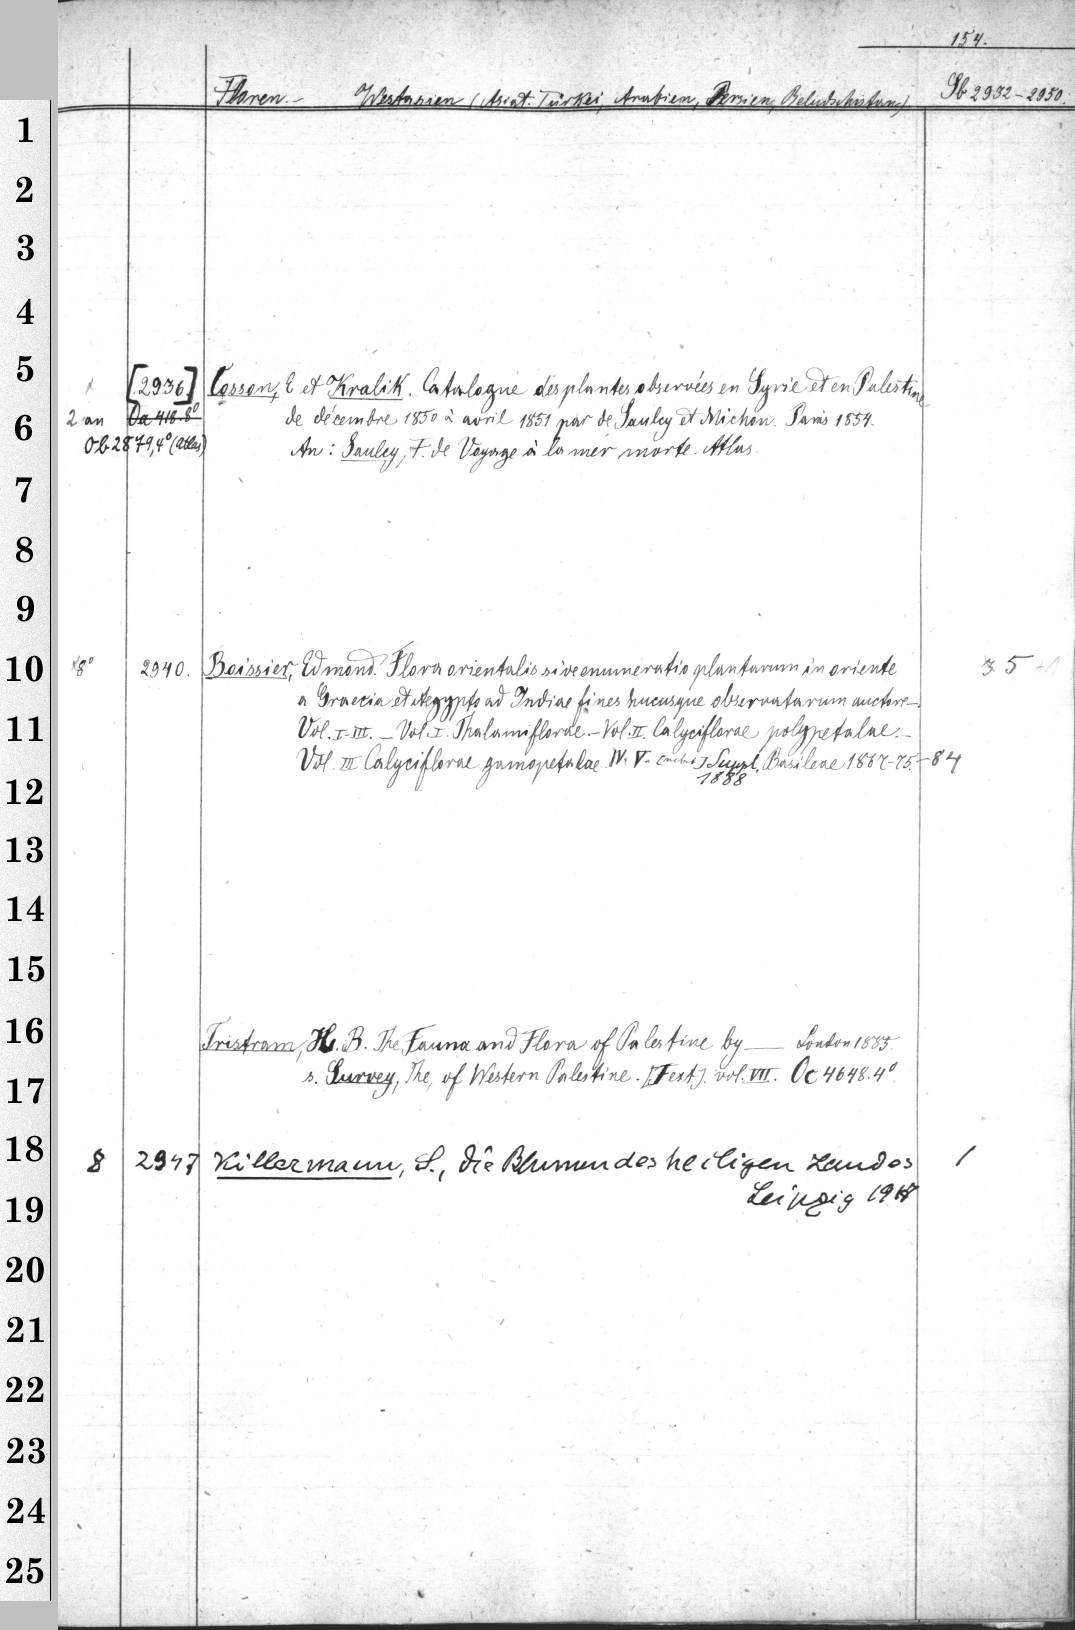 154.
Floren.– Westasien (Asiat. Türkei, Arabien, Persien, Beludschistan) Sb 2932–2950.
1
2
3
4
5
[2936] Cosson, E et Kralik. Catalogue des plantes observées en Syrie et en Palestine
6
2 an Oa 418.8° de décembre 1850 à avril 1851 par de Saulcy et Michon. Paris 1854.
Ob 2879,4° (Atlas) An: Saulcy, F. de Voyage à la mer morte. Atlas.
7
8
9
10
8° 2940. Boissier, Edmond. Flora orientalis sive enumeratio plantarum in oriente 35
a Graecia et Aegypto ad Indiae fines hucusque observatarum auctore –.
11
Vol. I–III. – Vol. I. Thalamiflorae. – Vol. II. Calyciflorae polypetalae. –
Vol. III Calyciflorae gamopetalae IV. V. Suppl. Basileae 1867–75.–84
1888
12
13
14
15
16
Tristram, H. B. The Fauna and Flora of Palestine by — London 1885.
17
s. Survey, The, of Western Palestine. [Text]. vol. VII. Oc 4648.4°
18
8 2947 Killermann, S., Die Blumen des heiligen Landes 1
19
Leipzig 19
20
21
22
23
24
25